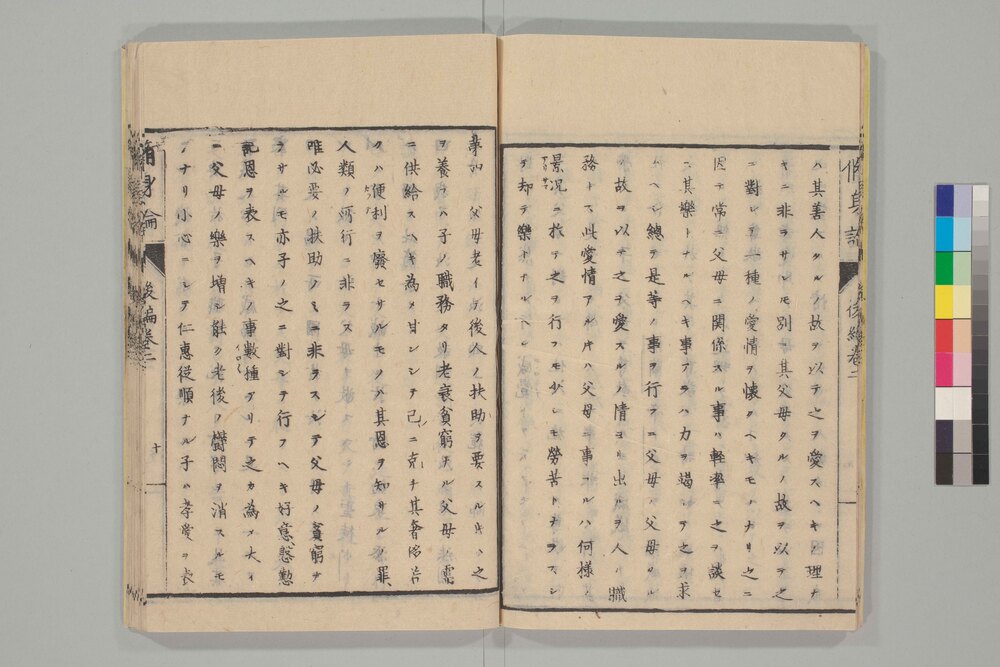 ハ其善人タルノ故ヲ以テ之ヲ愛スヘキノ理ナ
キニ非ラサレモ別ニ其父母タルノ故ヲ以テ之
ニ對シテ一種ノ愛情ヲ懐クヘキモノナリ之ニ
因テ常ニ父母ニ關係スル事ハ輕率ニ之ヲ談セ
ス其樂トナルヘキ事アラハ力ヲ竭シテ之ヲ求
ムヘシ總テ是等ノ事ヲ行フニ父母ノ父母タル
ノ故ヲ以テ之ヲ愛スルノ情ヨリ出ルヲ人ノ職
務トス此愛情アル片ハ父母ニ事フルハ何様ノ
景況ニ於テ之ヲ行フモ少シモ勞苦トナラスシ
テ却テ樂トナルヘシ
第四 父母老イテ後人ノ扶助ヲ要スル片ハ之
ヲ養フハ子ノ職務タリ老衰貧窮ナル父母ノ需
ニ供給スヘキ為メ甘シシテ己ニ克チ其奢侈ヲ
クハ便利ヲ廢セサルモノハ其恩ヲ知サルノ罪
人類ノ所行ニ非ラス
唯必要ノ扶助ノミニ非ラスシテ父母ノ貧窮ナ
ラサルモ亦子ノ之ニ對シテ行フヘキ好意慇懃
記恩ヲ表スヘキノ事數種アリテ之カ為メ大イ
ニ父母ノ樂ヲ増シ能ク老後ノ欝悶ヲ消スルモ
ノナリ小心ニシテ仁惠従順ナル子ハ孝愛ヲ表
脩身論 後編卷二
十